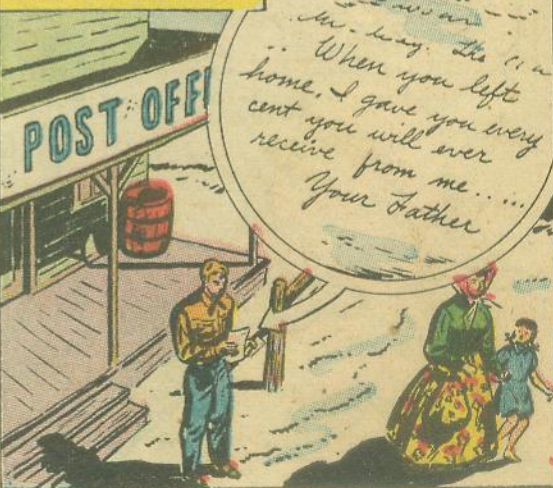 POST OFFI
When you left
home, I gave you every
cent you will ever
receive from me.....
Your Father